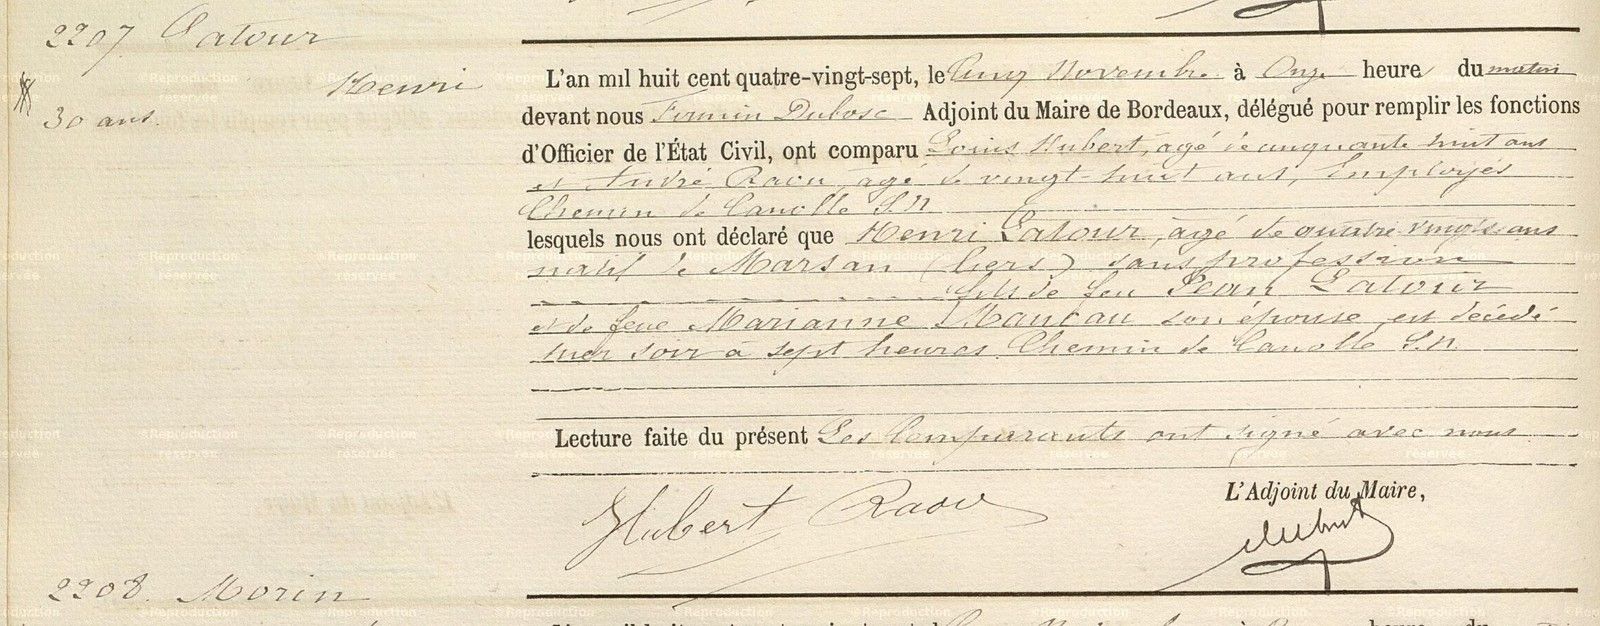 2207 Latour
Henri
30 ans.
L'an mil huit cent quatre-vingt-sept, le Cinq Novembre à Onze heure du matin
devant nous Firmin Dubosc Adjoint du Maire de Bordeaux, délégué pour remplir les fonctions
d'Officier de l'État Civil, ont comparu Louis Hubert, agé de cinquante huit ans
et André Raou, agé de vingt-huit ans, Employés
Chemin de Canolle S.N.
lesquels nous ont déclaré que Henri Latour, agé de quatre vingts ans
natif de Marsan (Gers) sans profession
fils de feu Jean Latour
et de feue Marianne son épouse, est décédé
hier soir à sept heures Chemin de Canolle S.N.
Lecture faite du présent Les Comparants ont signé avec nous
L'Adjoint du Maire,
Hubert Raou
2208. Morin
©Reproduction réservée